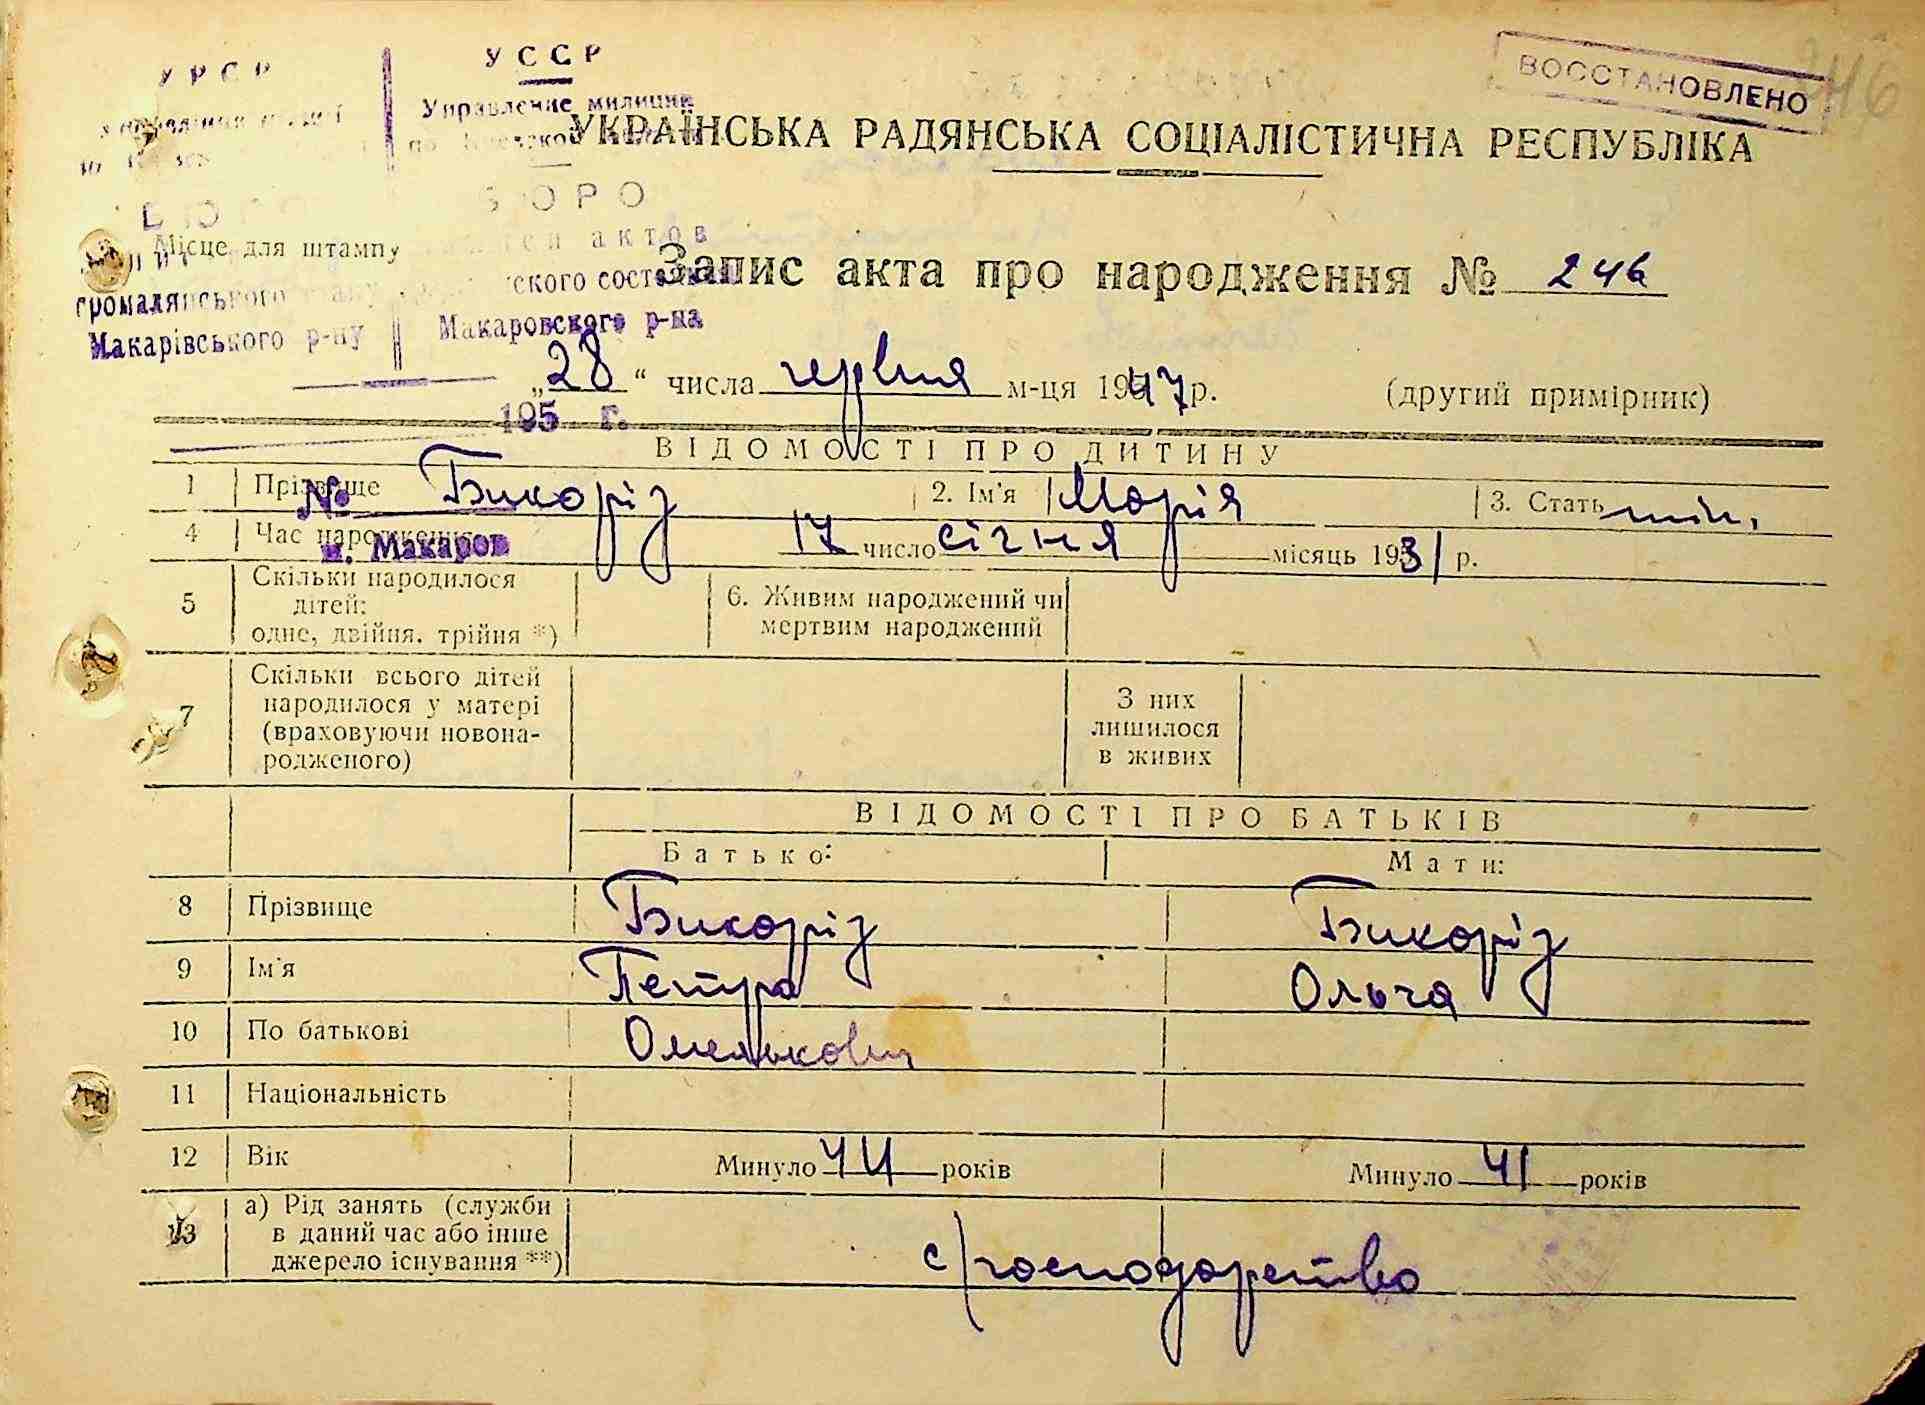 УРСР
УССР
ВОССТАНОВЛЕНО
246
Управление милиции
УКРАЇНСЬКА РАДЯНСЬКА СОЦІАЛІСТИЧНА РЕСПУБЛІКА
БЮРО
БЮРО
актов
Місце для штампу
Запис акта про народження № 246
громадянського стану
ского состояния
Макарівського р-ну
Макаровского р-на
„28“ числа червня м-ця 1947 р. (другий примірник)
195 г.
ВІДОМОСТІ ПРО ДИТИНУ
1 Прізвище Бикоріз 2. Ім'я Марія 3. Стать жін.
№
4 Час народження 17 число січня місяць 1931 р.
м. Макаров
5 Скільки народилося дітей: одне, двійня, трійня *) 6. Живим народжений чи мертвим народжений
7 Скільки всього дітей народилося у матері (враховуючи новонародженого) З них лишилося в живих
ВІДОМОСТІ ПРО БАТЬКІВ
Батько: Мати:
8 Прізвище Бикоріз Бикоріз
9 Ім'я Петро Ольга
10 По батькові Омелькович
11 Національність
12 Вік Минуло 44 років Минуло 41 років
13 а) Рід занять (служби в даний час або інше джерело існування **) с/господарство